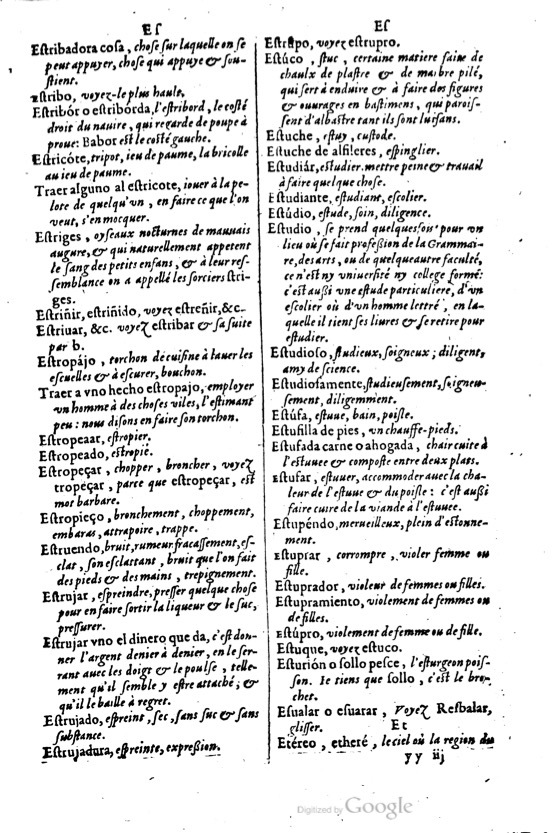 Es
Estribadora cosa, chose sur laquelle on se
peut appuyer, chose qui appuye & sou-
stient.
Estribo, voyez-le plus hault.
Estribór o estribórda, l'estribord, le costé
droit du nauire, qui regarde de poupe à
proue: Babor est le costé gauche.
Estricóte, tripot, ieu de paume, la bricolle
au ieu de paume.
Traer alguno al estricote, iouer à la pe-
lote de quelqu'vn, en faire ce que l'on
veut, s'en mocquer.
Estriges, oyseaux nocturnes de mauuais
augure, & qui naturellement appetent
le sang des petits enfans, & à leur res-
semblance on a appellé les sorciers stri-
ges.
Estriñir, estriñido, voyez estreñir, &c.
Estriuar, &c. voyez estribar & sa suite
par b.
Estropájo, torchon de cuisine à lauer les
escuelles & à escurer, bouchon.
Traer a vno hecho estropajo, employer
vn homme à des choses viles, l'estimant
peu: nous disons en faire son torchon.
Estropeaar, estropier.
Estropeado, estropié.
Estropeçar, chopper, broncher, voyez
tropeçar, parce que estropeçar, est
mot barbare.
Estropieço, bronchement, choppement,
embaras, attrapoire, trappe.
Estruendo, bruit, rumeur, fracassement, es-
clat, son esclattant, bruit que l'on fait
des pieds & des mains, trepignement.
Estrujar, espreindre, presser quelque chose
pour en faire sortir la liqueur & le suc,
pressurer.
Estrujar vno el dinero que da, c'est don-
ner l'argent denier à denier, en le ser-
rant auec les doigt & le poulse, telle-
ment qu'il semble y estre attaché; &
qu'il le baille à regret.
Estrujado, espreint, sec, sans suc & sans
substance.
Estrujadura, espreinte, expression.
Es
Estrupo, voyez estrupro.
Estúco, stuc, certaine matiere faite de
chaulx de plastre & de maibre pilé,
qui sert à enduire & à faire des figures
& ouurages en bastimens, qui parois-
sent d'albastre tant ils sont luisans.
Estuche, estuy, custode.
Estuche de alfileres, espinglier.
Estudiár, estudier, mettre peine & trauail
à faire quelque chose.
Estudiante, estudiant, escolier.
Estúdio, estude, soin, diligence.
Estudio, se prend quelquesfois pour vn
lieu où se fait profession de la Grammai-
re, des arts, ou de quelque autre faculté,
ce n'est ny vniuersité ny college formé:
c'est aussi vne estude particuliere, d'vn
escolier où d'vn homme lettré, en la-
quelle il tient ses liures & se retire pour
estudier.
Estudioso, studieux, soigneux; diligent,
amy de science.
Estudiosamente, studieusement, soigneu-
sement, diligemment.
Estúfa, estuue, bain, poisle.
Estufilla de pies, vn chauffe-pieds.
Estufada carne o ahogada, chair cuite à
l'estuuee & composte entre deux plats.
Estufar, estuuer, accommoder auec la cha-
leur de l'estuue & du poisle: c'est aussi
faire cuire de la viande à l'estuuee.
Estupéndo, merueilleux, plein d'estonne-
ment.
Estuprar, corrompre, violer femme ou
fille.
Estuprador, violeur de femmes ou filles.
Estupramiento, violement de femmes ou
de filles.
Estúpro, violement de femme ou de fille.
Estuque, voyez estuco.
Esturión o sollo pesce, l'esturgeon pois-
son. Ie tiens que sollo, c'est le bro-
chet.
Esualar o esuarar, Voyez Resbalar,
glisser.
Et
Etéreo, etheré, le ciel où la region du
yy iij
Digitized by Google